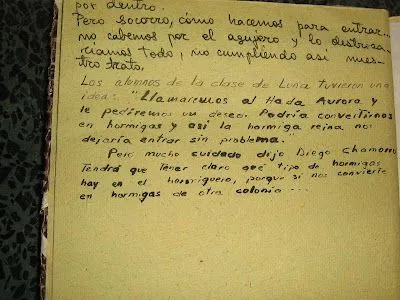 por dentro.
Pero socorro, cómo hacemos para entrar...
no cabemos por el agujero y lo destroza-
ríamos todo, no cumpliendo así nues-
tro trato.
Los alumnos de la clase de Luna tuvieron una
idea: "Llamaremos al Hada Aurora y
le pediremos un deseo. Podría convertirnos
en hormigas y así la hormiga reina nos
dejaría entrar sin problema.
Pero mucho cuidado dijo Diego Chamorro
Tendrá que tener claro qué tipo de hormigas
hay en el hormiguero, porque si nos convierte
en hormigas de otra colonia ...